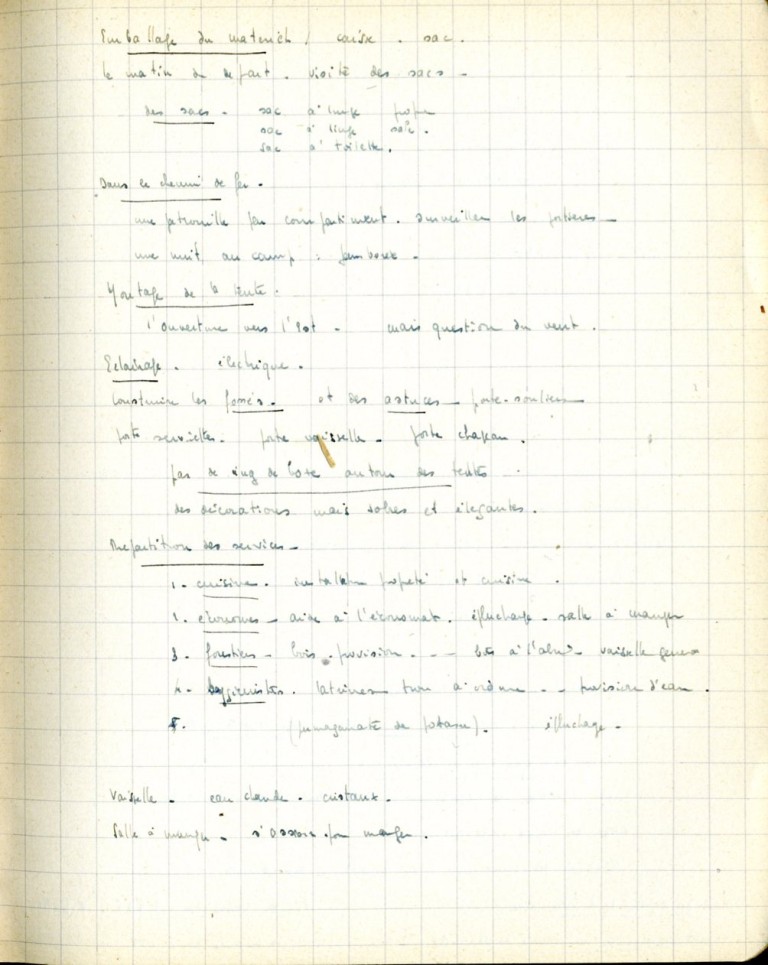 Emballage du matériel / caisse . sac .
le matin du départ . visite des sacs -
des sacs - sac à linge propre
sac à linge sale .
sac à toilette .
Dans le chemin de fer .
une patrouille par compartiment . surveiller les portières -
une nuit au camp :
Montage de la tente .
l'ouverture vers l'Est - mais question du vent .
Eclairage . électrique .
Construire les fossés . et des astuces - porte-souliers -
porte serviettes . porte vaisselle - porte chapeau .
pas de autour des tentes .
des décorations mais sobres et élégantes .
Répartition des services -
1 - cuisine . installation propreté et cuisine .
économes - aide à l'économat . épluchage . salle à manger
3 - forestiers - bois . provision . - - à l'abri vaisselle
4 - hygiénistes . latrines - - provision d'eau .
5 . (permaganate de potasse) . épluchage -
Vaisselle - eau chaude . cristaux .
Salle à manger - s'asseoir pour manger .